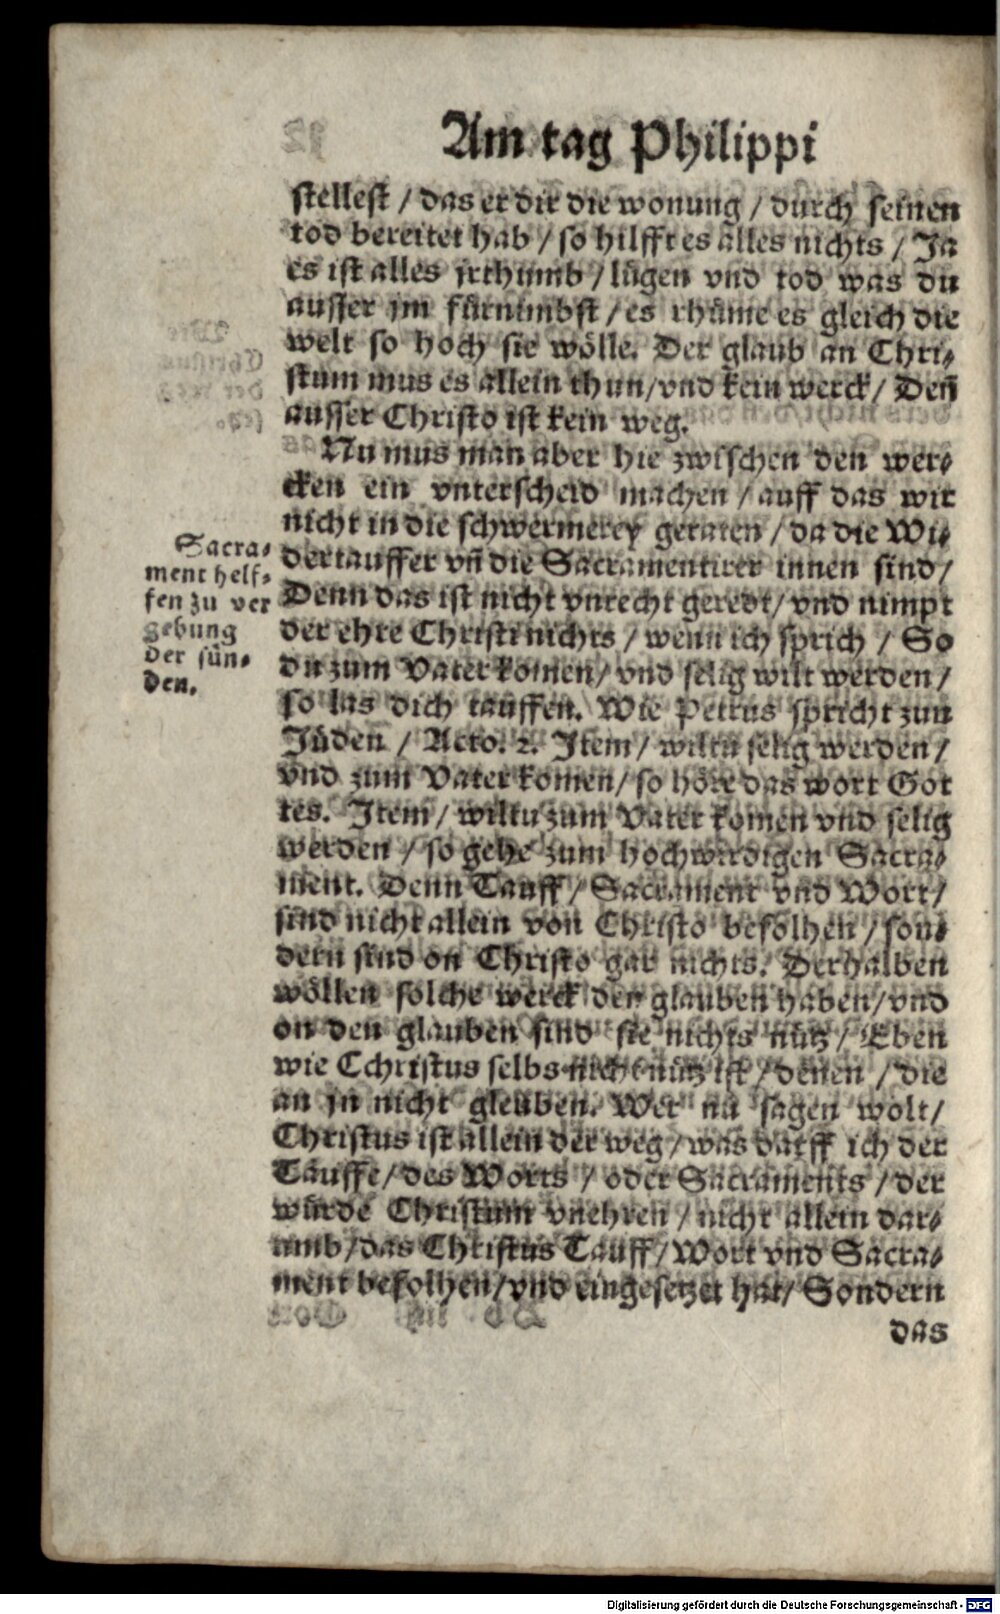 Am tag Philippi
stellest / das er dir die wonung / durch seinen
tod bereitet hab / so hilfft es alles nichts / Ja
es ist alles jrthumb / lügen vnd tod was du
ausser jm fürnimbst / es rhüme es gleich die
welt so hoch sie wölle. Der glaub an Chri-
stum mus es allein thun / vnd kein werck / Deñ
ausser Christo ist kein weg.
Nu mus man aber hie zwischen den wer-
cken ein vnterscheid machen / auff das wir
nicht in die schwermerey geraten / da die Wi-
dertauffer vñ die Sacramentirer innen sind /
Denn das ist nicht vnrecht geredt / vnd nimpt
der ehre Christi nichts / wenn ich sprich / So
du zum Vater komen / vnd selig wilt werden /
so las dich tauffen. Wie Petrus spricht zun
Jüden / Acto. 2. Item / wiltu selig werden /
vnd zum Vater komen / so höre das wort Got
tes. Item / wiltu zum Vater komen vnd selig
werden / so gehe zum hochwirdigen Sacra-
ment. Denn Tauff / Sacrament vnd Wort /
sind nicht allein von Christo befolhen / son-
dern sind on Christo gar nichts. Derhalben
wöllen solche werck den glauben haben / vnd
on den glauben sind sie nichts nütz / Eben
wie Cchristus selbs nicht nütz ist / denen / die
an jn nicht gleuben. Wer nu sagen wolt /
Christus ist allein der weg / was darff ich der
Tauffe / des Worts / oder Sacraments / der
würde Christum vnehren / nicht allein dar-
umb / das Christus Tauff / Wort vnd Sacra-
ment befolhen / vnd eingesetzet hat / Sondern
das
Sacra-
ment helf-
fen zu ver
gebung
der sün-
den.
Digitalisierung gefördert durch die Deutsche Forschungsgemeinschaft - DFG